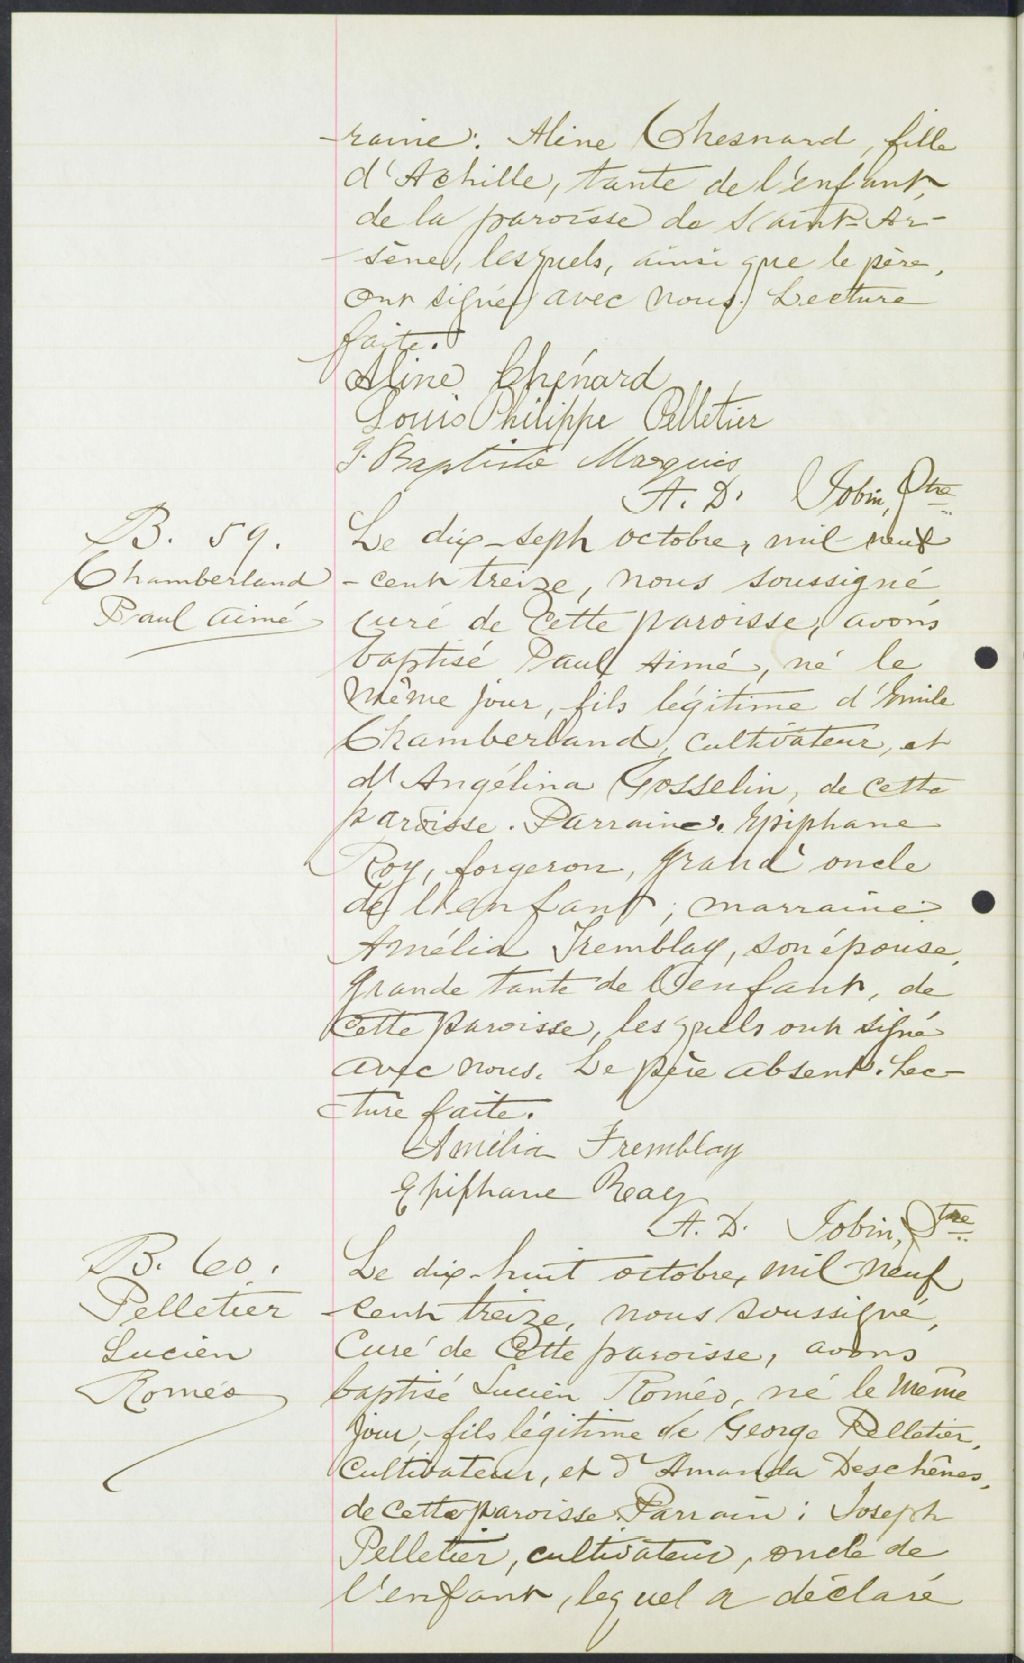 -raine: Aline Chesnard, fille
d'Achille, tante de l'enfant,
de la paroisse de Saint-Ar-
-sène, lesquels, ainsi que le père,
ont signé avec nous. Lecture
faite.
Aline Chénard
Louis Philippe Pelletier
J. Baptiste Marquis
A. D. Jobin, Ptre
B. 59.
Chamberland
Paul Aimé
Le dix-sept octobre, mil neuf
-cent treize, nous soussigné,
curé de cette paroisse, avons
baptisé Paul Aimé, né le
même jour, fils légitime d'Emile
Chamberland, cultivateur, et
d'Angélina Gosselin, de cette
paroisse. Parrain: Epiphane
Roy, forgeron, grand'oncle
de l'enfant; marraine:
Amélia Tremblay, son épouse,
grande tante de l'enfant, de
cette paroisse, lesquels ont signé
avec nous. Le père absent. Lec-
-ture faite.
Amélia Tremblay
Epiphane Roy
A. D. Jobin, Ptre
B. 60.
Pelletier
Lucien
Roméo
Le dix-huit octobre, mil neuf
-cent treize, nous soussigné,
Curé de cette paroisse, avons
baptisé Lucien Roméo, né le même
jour, fils légitime de George Pelletier,
cultivateur, et d'Amanda Deschênes,
de cette paroisse. Parrain: Joseph
Pelletier, cultivateur, oncle de
l'enfant, lequel a déclaré